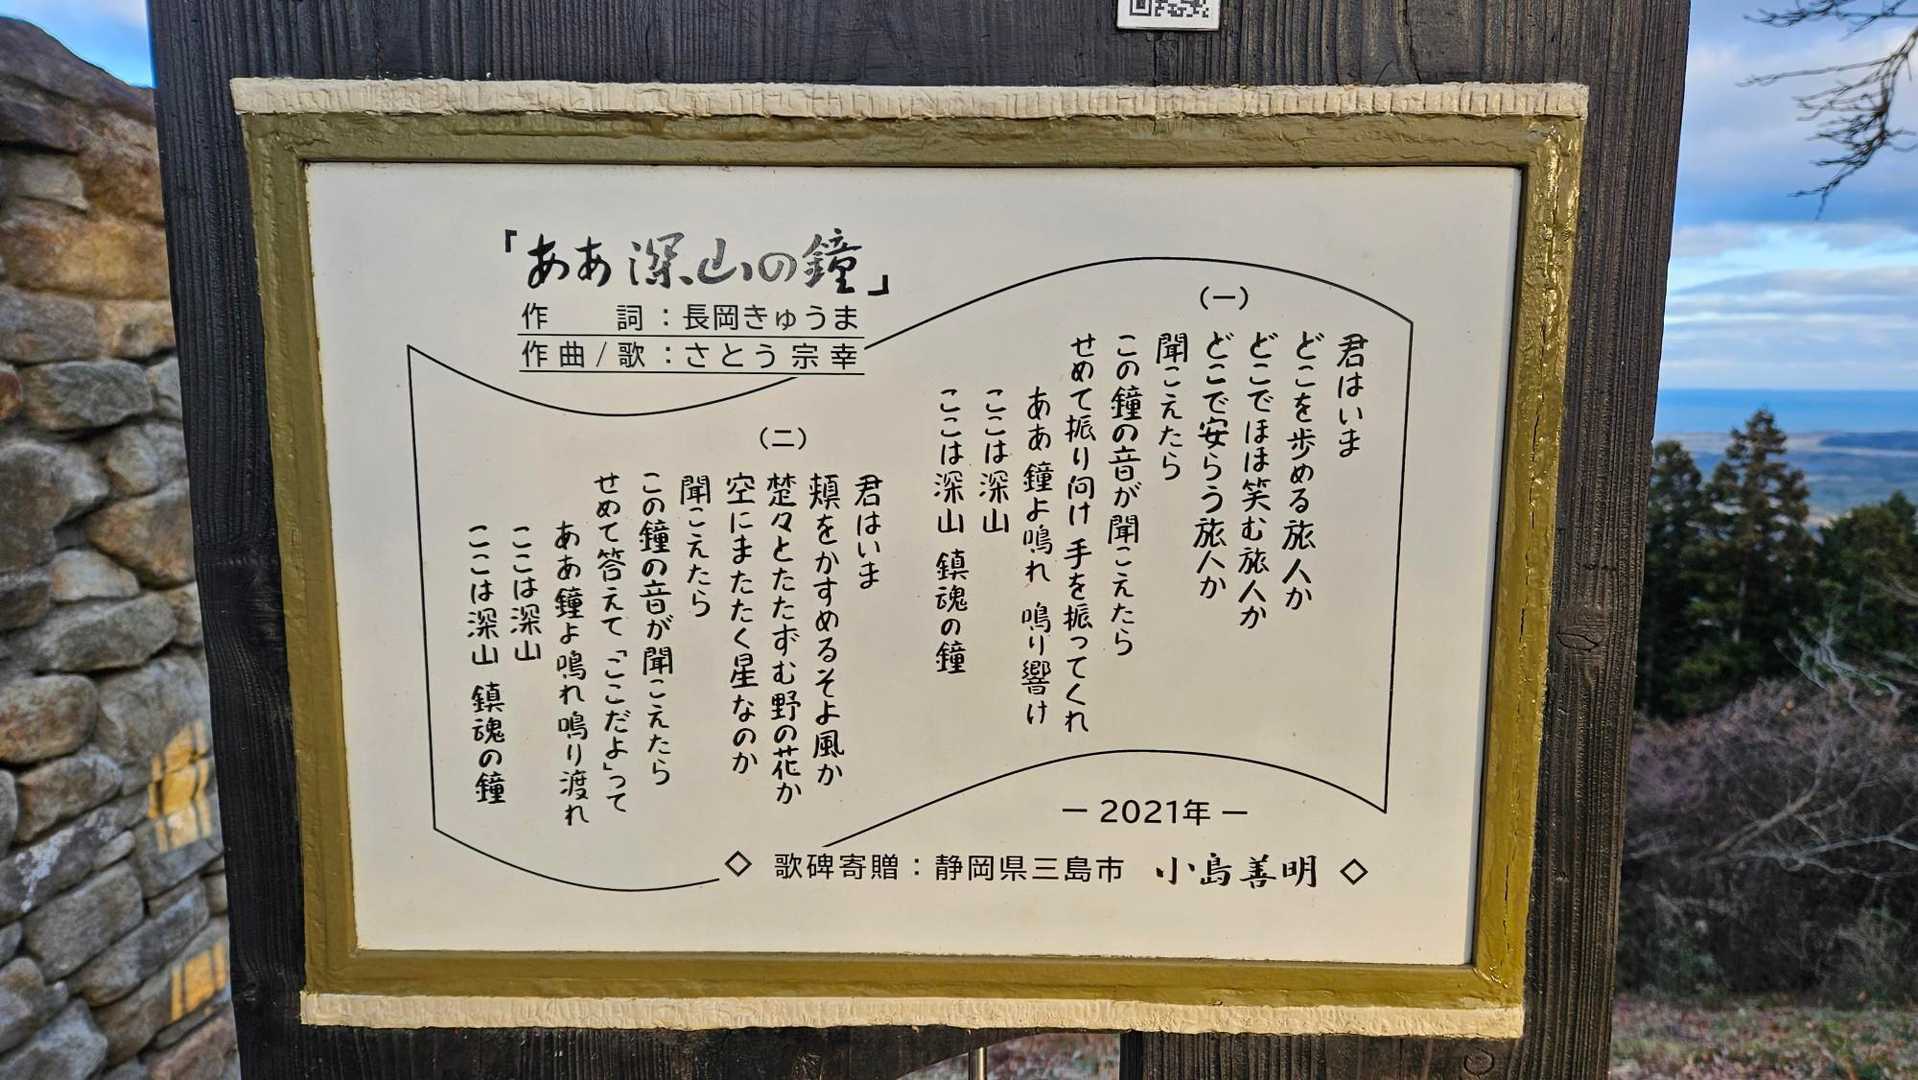 「ああ深山の鐘」
作　詞：長岡きゅうま
作曲/歌：さとう宗幸
（一）
君はいま
どこを歩める旅人か
どこでほほ笑む旅人か
どこで安らう旅人か
聞こえたら
この鐘の音が聞こえたら
せめて振り向け 手を振ってくれ
ああ 鐘よ鳴れ 鳴り響け
ここは深山
ここは深山 鎮魂の鐘
（二）
君はいま
頬をかすめるそよ風か
楚々とたたずむ野の花か
空にまたたく星なのか
聞こえたら
この鐘の音が聞こえたら
せめて答えて「ここだよ」って
ああ鐘よ鳴れ鳴り渡れ
ここは深山
ここは深山 鎮魂の鐘
― 2021年 ―
◇ 歌碑寄贈：静岡県三島市 小島善明 ◇